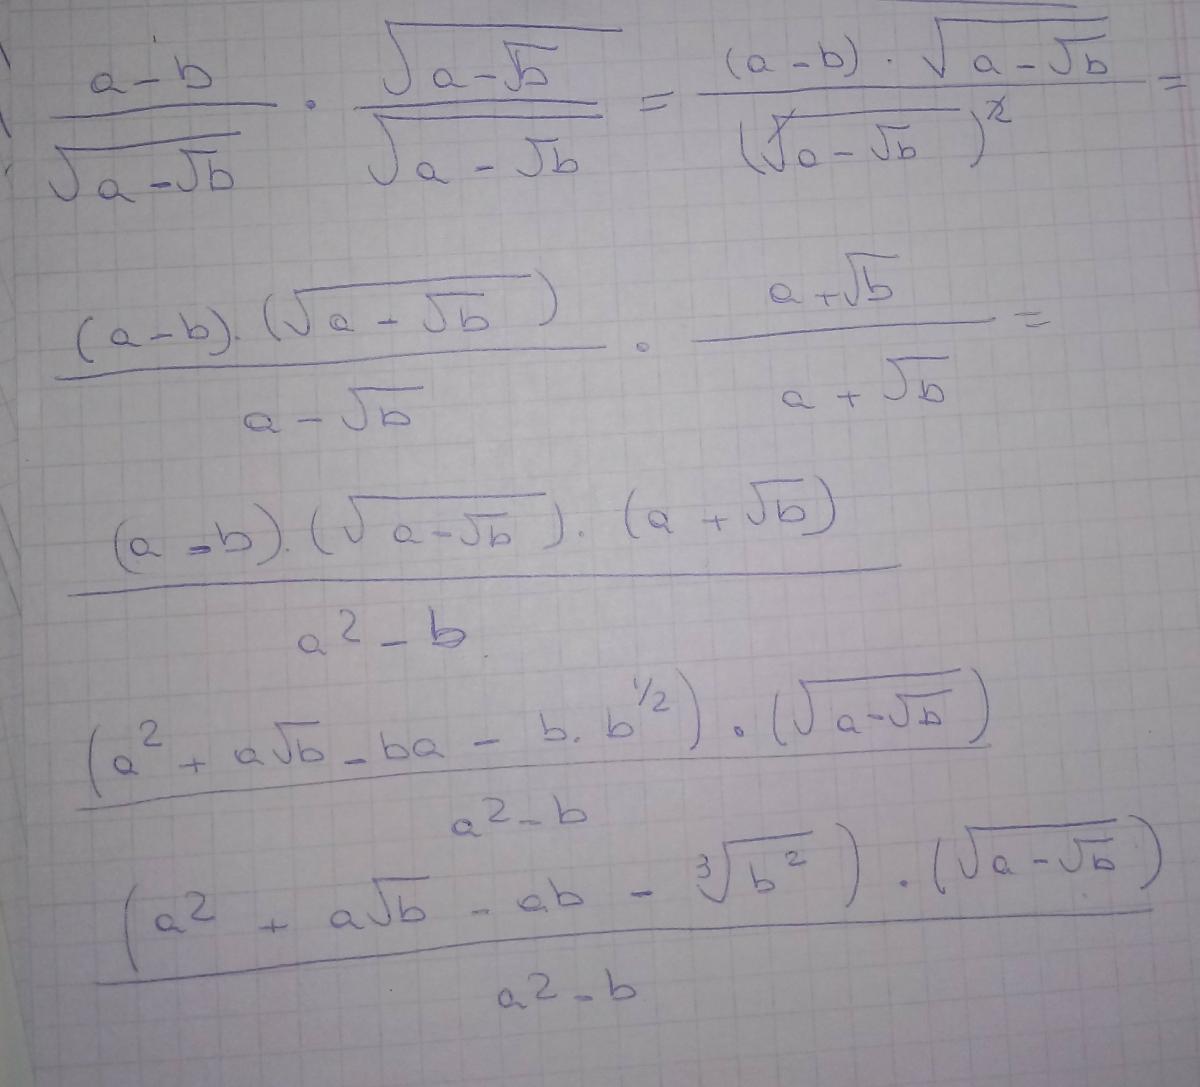 \frac{a-b}{\sqrt{a-\sqrt{b}}} \cdot \frac{\sqrt{a-\sqrt{b}}}{\sqrt{a-\sqrt{b}}} = \frac{(a-b) \cdot \sqrt{a-\sqrt{b}}}{(\sqrt{a-\sqrt{b}})^2} =
\frac{(a-b) \cdot (\sqrt{a-\sqrt{b}})}{a-\sqrt{b}} \cdot \frac{a+\sqrt{b}}{a+\sqrt{b}} =
\frac{(a-b) \cdot (\sqrt{a-\sqrt{b}}) \cdot (a+\sqrt{b})}{a^2-b}
\frac{(a^2+a\sqrt{b}-ba-b \cdot b^{1/2}) \cdot (\sqrt{a-\sqrt{b}})}{a^2-b}
\frac{(a^2+a\sqrt{b}-ab-\sqrt[3]{b^2}) \cdot (\sqrt{a-\sqrt{b}})}{a^2-b}